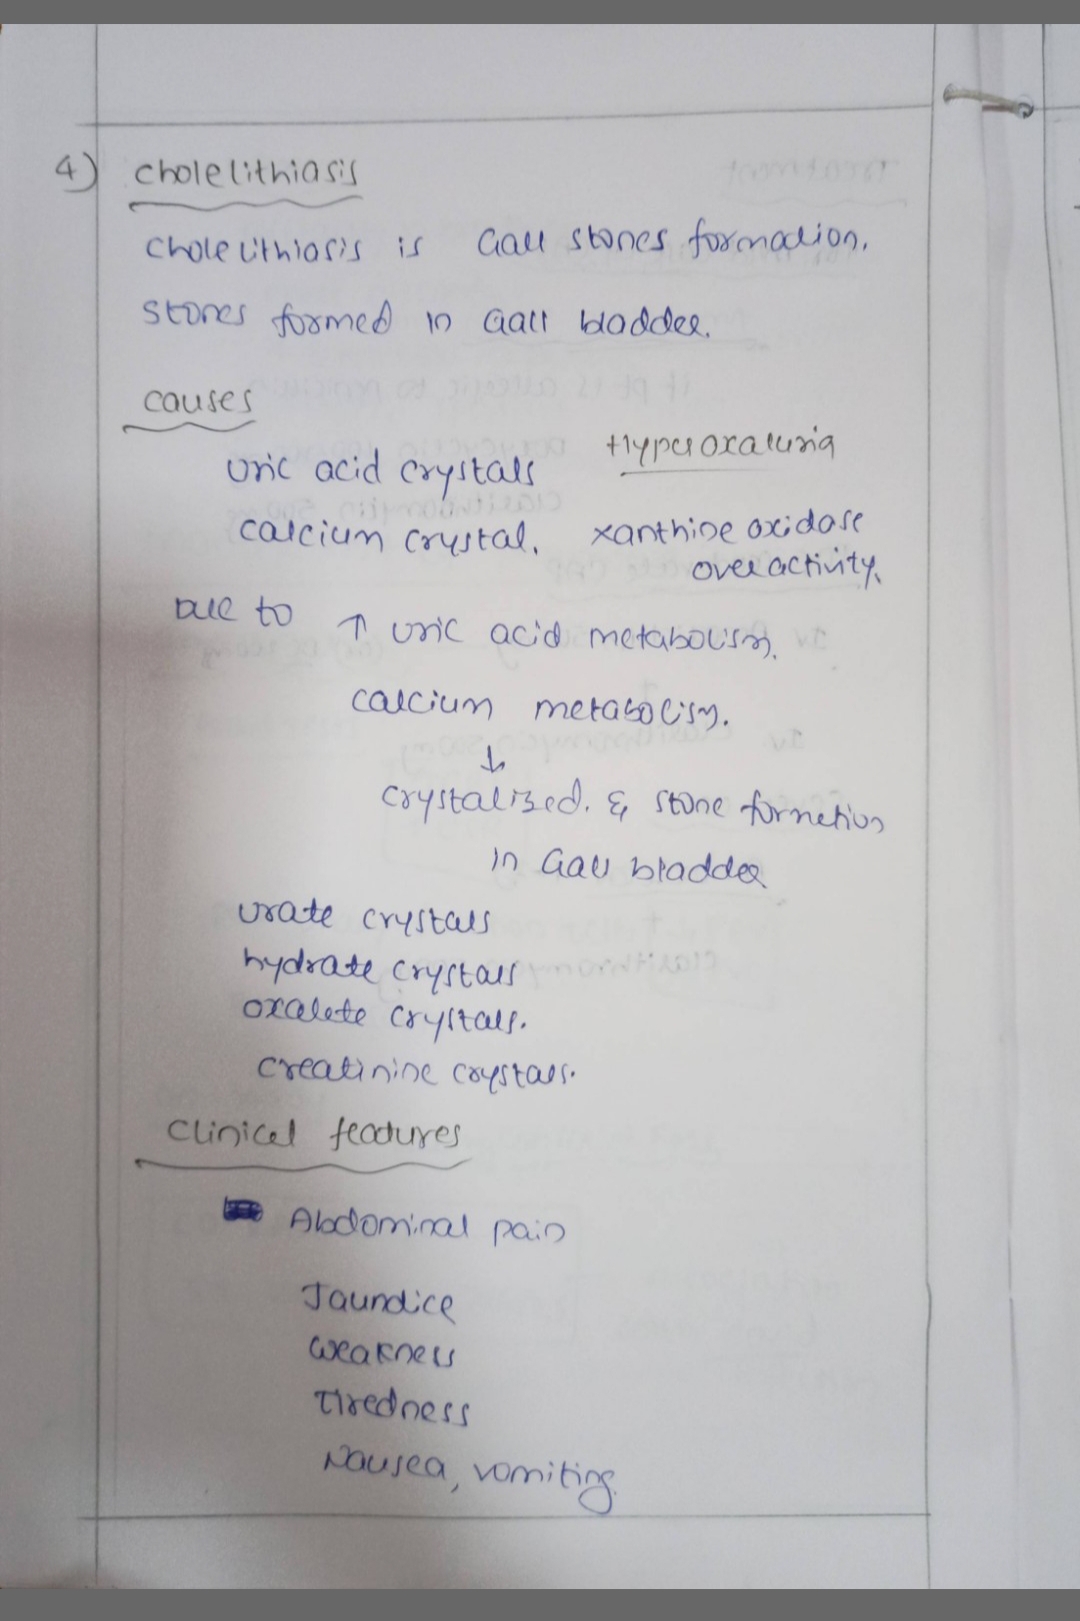 4) Cholelithiasis
Cholelithiasis is Gall stones formation.
Stones formed in Gall bladder.
Causes
Hyperoxaluria
Uric acid crystals
Calcium crystal. Xanthine oxidase
overactivity.
Due to ↑ uric acid metabolism.
Calcium metabolism.
↓
crystalized. & stone formation
in Gall bladder
Urate crystals
hydrate crystals
oxalete crystals.
Creatinine crystals.
Clinical features
Abdominal pain
Jaundice
Weakness
Tiredness
Nausea, vomiting.